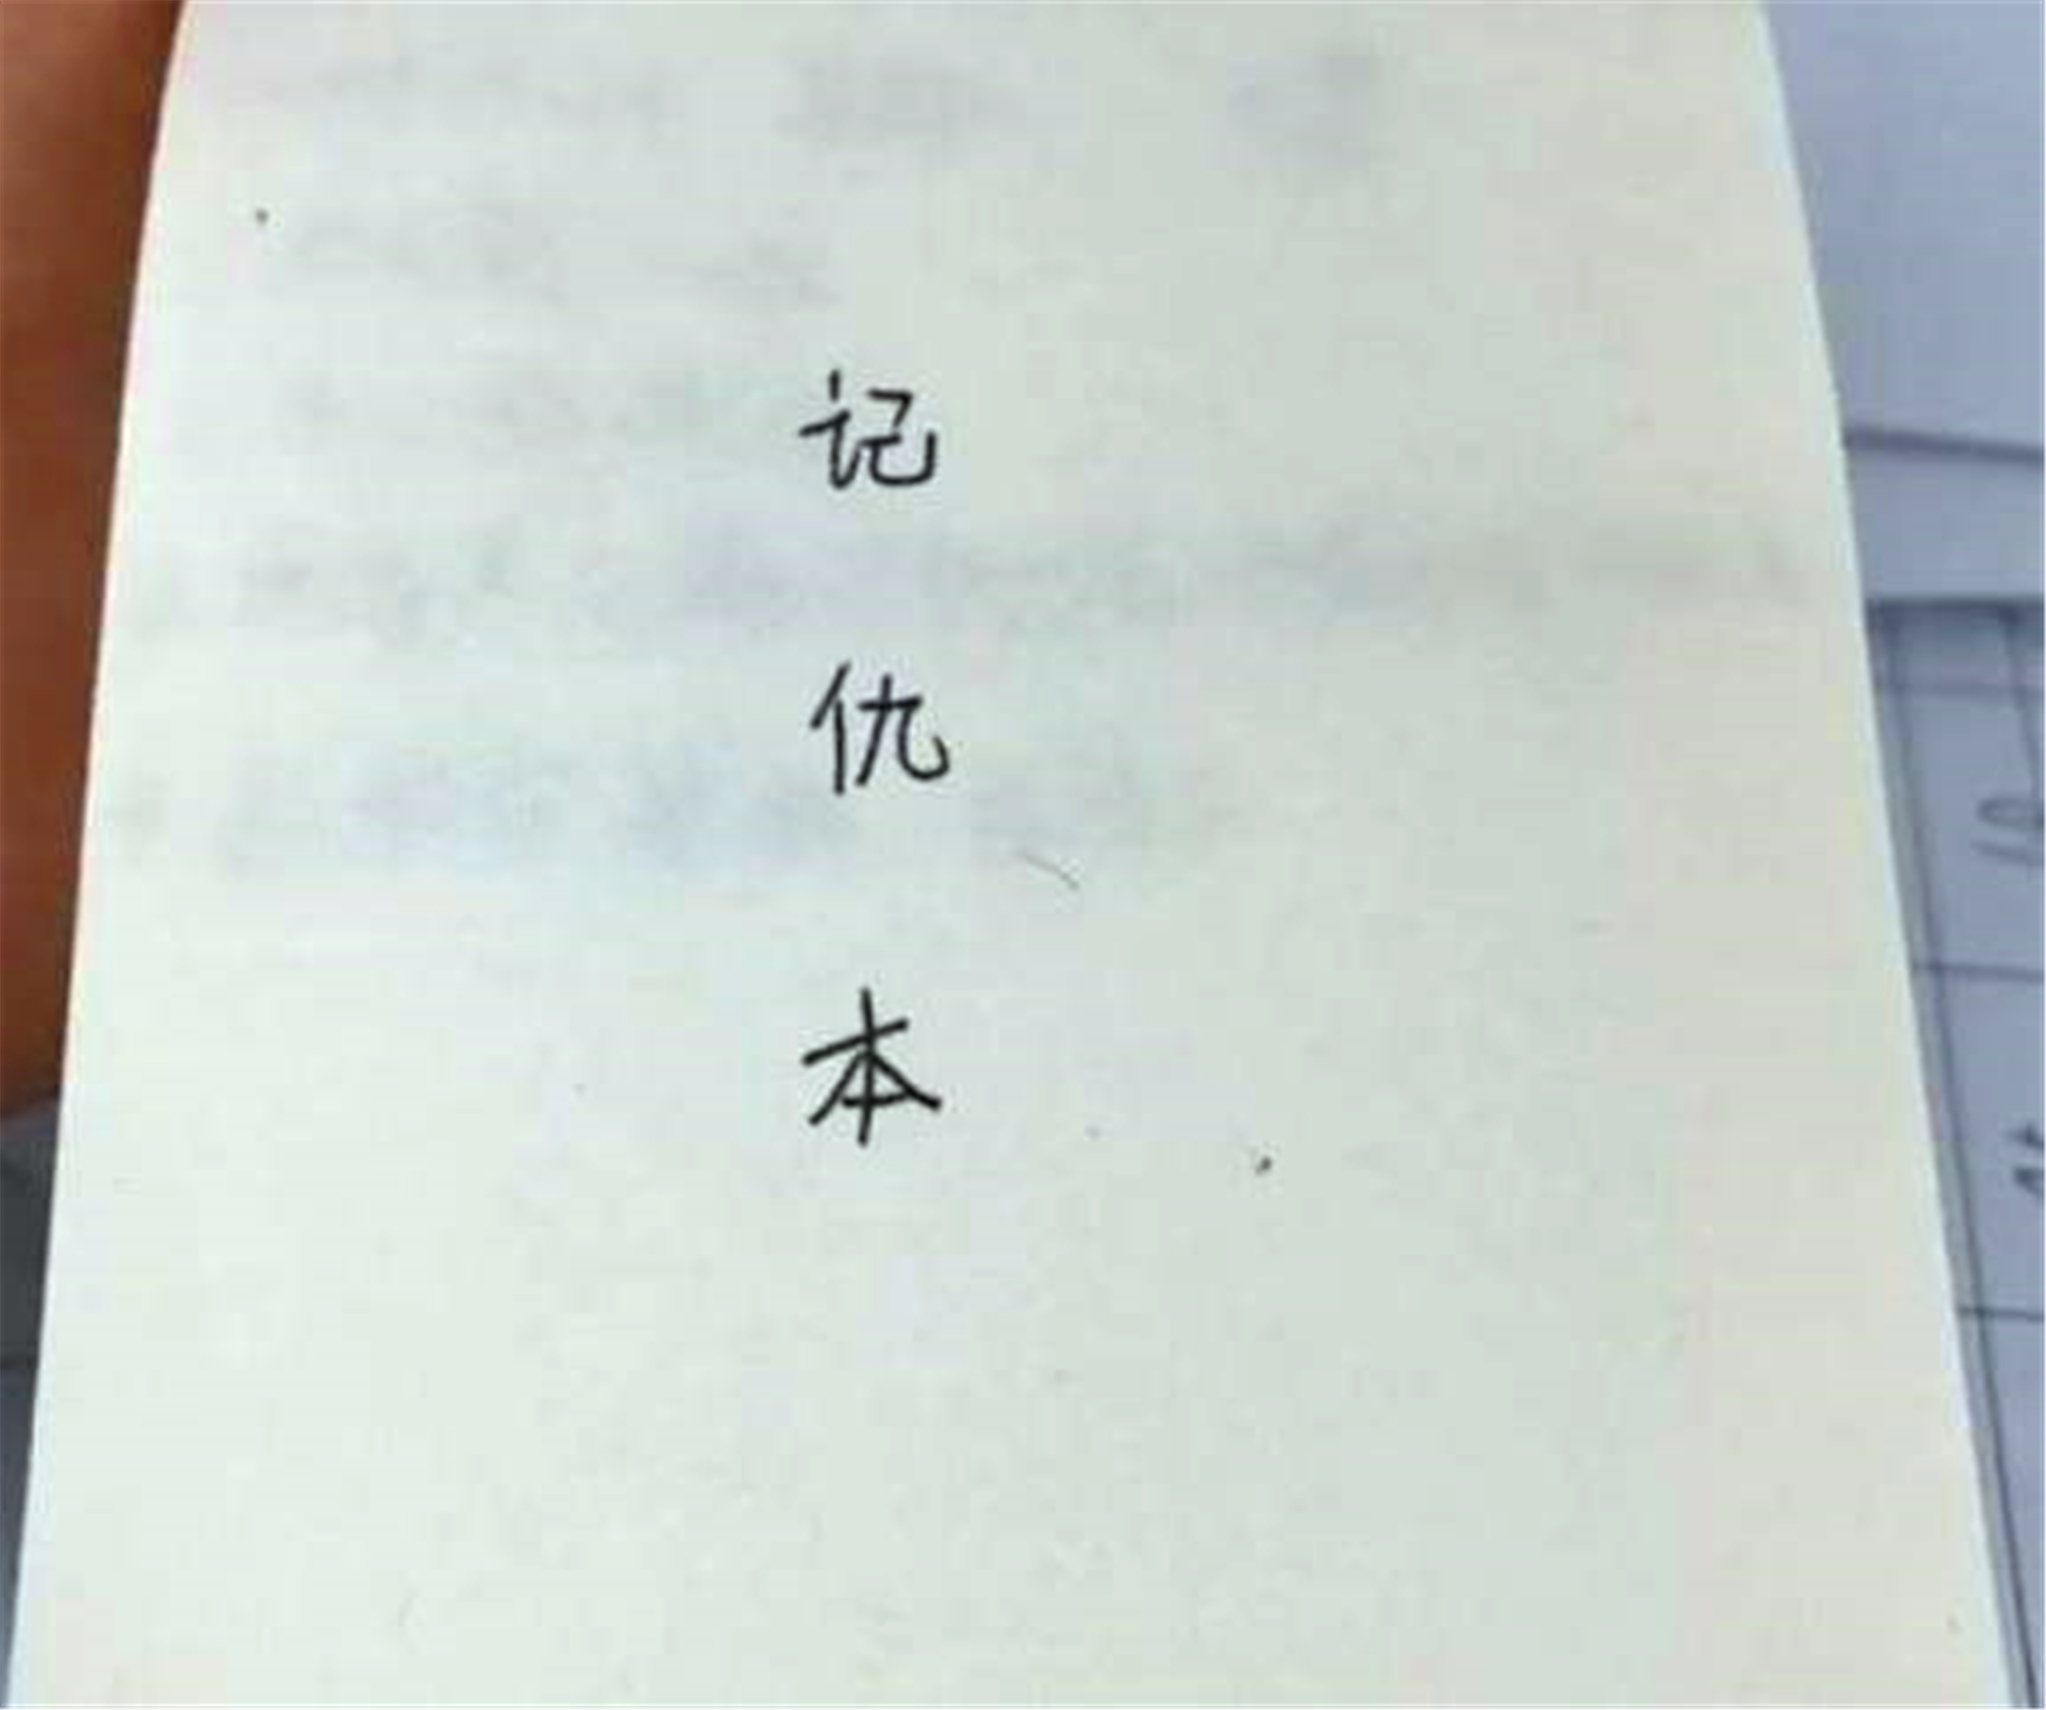 记
仇
本